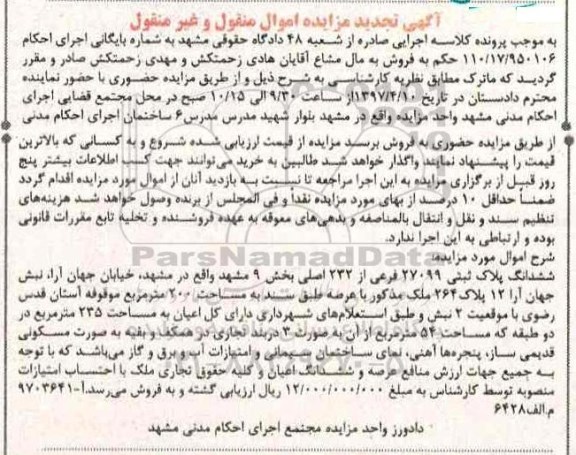 آگهی تجدید مزایده اموال منقول و غیر منقول
به موجب پرونده کلاسه اجرایی صادره از شعبه ۴۸ دادگاه حقوقی مشهد به شماره بایگانی اجرای احکام
۱۱۰/۱۷/۹۵۰۱۰۶ حکم به فروش به مال مشاع آقایان هادی زحمتکش و مهدی زحمتکش صادر و مقرر
گردیـد که ماترک مطابق نظریه کارشناسی به شرح ذیل و از طریق مزایده حضـوری با حضور نماینده
محترم دادستان در تاریخ ۱۳۹۷/۴/۱۰از ساعت ۹/۳۰ الی ۱۰/۱۵ صبح در محل مجتمع قضایی اجرای
احکام مدنی مشهد واحد مزایده واقع در مشهد بلوار شهید مدرس مدرس۶ ساختمان اجرای احکام مدنی
از طریق مزایده حضوری به فروش برسد مزایده از قیمت ارزیابی شده شروع و به کسانی که بالاترین
قیمت را پیشنهاد نمایند واگذار خواهد شد طالبین به خرید می‌توانند جهت کسب اطلاعات بیشتر پنج
روز قبل از برگزاری مزایده به این اجرا مراجعه تا نسبت به بازدید آنان از اموال مورد مزایده اقدام گردد
ضمنا حداقل ۱۰ درصد از بهای مورد مزایده نقدا و فی المجلس از برنده وصول خواهد شد هزینه‌های
تنظیم سند و نقل و انتقال بالمناصفه و بدهی‌های معوقه به عهده فروشنده و تخلیه تابع مقررات قانونی
بوده و ارتباطی به این اجرا ندارد.
شرح اموال مورد مزایده:
ششدانگ پلاک ثبتی ۲۷۰۹۹ فرعی از ۲۳۲ اصلی بخش ۹ مشهد واقع در مشهد، خیابان جهان آرا، نبش
جهان آرا ۱۲ پلاک۲۶۴ ملک مذکور با عرصه طبق سند به مساحت ۲۰۰ مترمربع موقوفه آستان قدس
رضوی با موقعیت ۲ نبش و طبق استعلام‌های شهرداری دارای کل اعیان به مساحت ۲۳۵ مترمربع در
دو طبقه که مساحت ۵۴ مترمربع از آن به صورت ۳ دربند تجاری در همکف و بقیه به صورت مسکونی
قدیمی ساز، پنجره‌ها آهنی، نمای ساختمان سیمانی و امتیازات آب، برق و گاز می‌باشد که با توجه
به جمیع جهات ارزش منافع عرصه و ششدانگ اعیان و کلیه حقوق تجاری ملک با احتساب امتیازات
منصوبه توسط کارشناس به مبلغ ۱۲/۰۰۰/۰۰۰/۰۰۰ ریال ارزیابی گشته و به فروش می‌رسد.آ-۹۷۰۳۶۴۱
م.الف۶۴۲۸
دادورز واحد مزایده مجتمع اجرای احکام مدنی مشهد
ParsNamadData